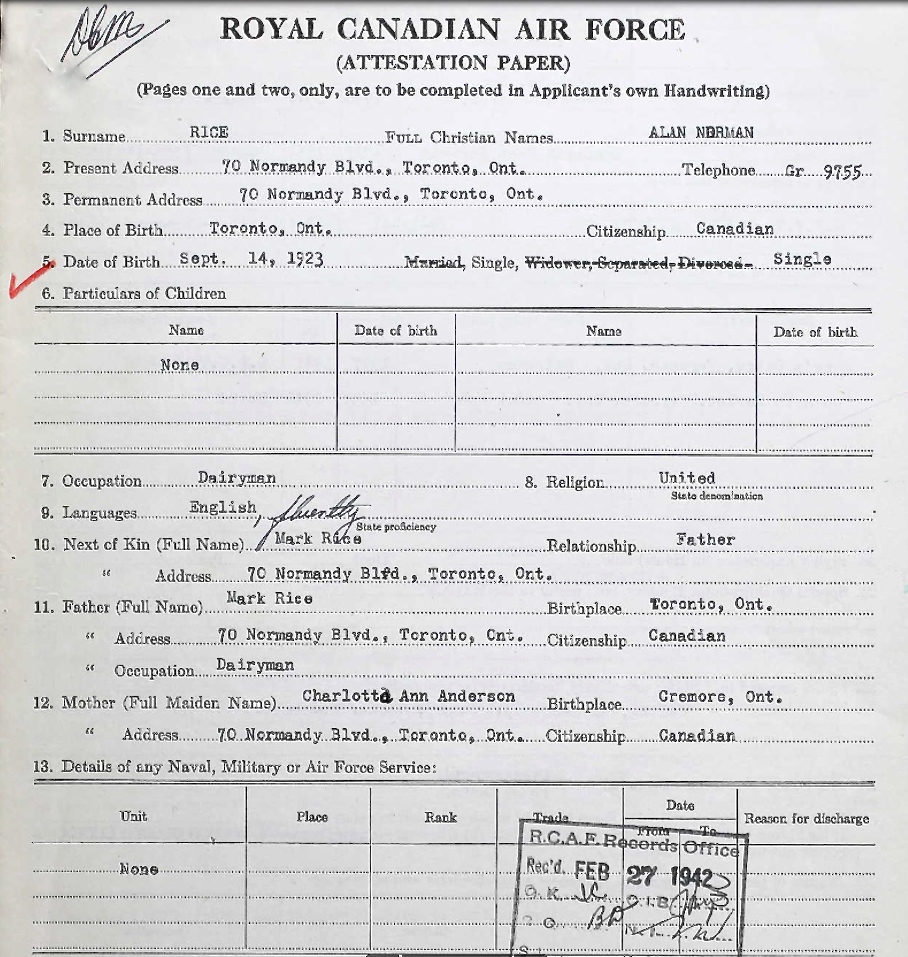 ROYAL CANADIAN AIR FORCE
(ATTESTATION PAPER)
(Pages one and two, only, are to be completed in Applicant's own Handwriting)
1. Surname RICE FULL Christian Names ALAN NORMAN
2. Present Address 70 Normandy Blvd., Toronto, Ont. Telephone Gr 9755
3. Permanent Address 70 Normandy Blvd., Toronto, Ont.
4. Place of Birth Toronto, Ont. Citizenship Canadian
5. Date of Birth Sept. 14, 1923 Married, Single, Widower, Separated, Divorced- Single
6. Particulars of Children
Name Date of birth Name Date of birth
None
7. Occupation Dairyman 8. Religion United
State denomination
9. Languages English, fluently
State proficiency
10. Next of Kin (Full Name) Mark Rice Relationship Father
" Address 70 Normandy Blfd., Toronto, Ont.
11. Father (Full Name) Mark Rice Birthplace Toronto, Ont.
" Address 70 Normandy Blvd., Toronto, Ont. Citizenship Canadian
" Occupation Dairyman
12. Mother (Full Maiden Name) Charlotte Ann Anderson Birthplace Cremore, Ont.
" Address 70 Normandy Blvd., Toronto, Ont. Citizenship Canadian
13. Details of any Naval, Military or Air Force Service:
Unit Place Rank Trade Date Reason for discharge
From To
R.C.A.F. Records Office
None
Rec'd. FEB 27 1942